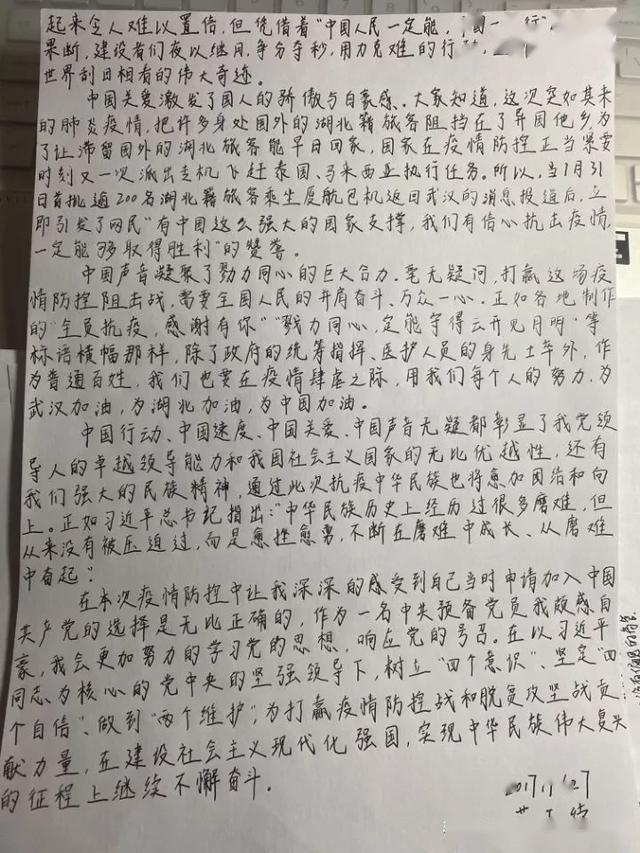 起来令人难以置信，但凭借着“中国人民一定能，
果断，建设者们夜以继日，争分夺秒，用力克难的行
世界刮目相看的伟大奇迹。
中国关爱激发了国人的骄傲与自豪感。大家知道，这次突如其来
的肺炎疫情，把许多身处国外的湖北籍旅客阻挡在了异国他乡，为
了让滞留国外的湖北旅客能早日回家，国家在疫情防控正当紧要
时刻又一次派出专机飞赴泰国、马来西亚执行任务。所以，当1月31
日首批逾200名湖北籍旅客乘坐厦航包机返回武汉的消息报道后，立
即引发了网民“有中国这么强大的国家支撑，我们有信心抗击疫情，
一定能够取得胜利”的赞誉。
中国声音凝聚了勠力同心的巨大合力。毫无疑问，打赢这场疫
情防控阻击战，需要全国人民的并肩奋斗、万众一心。正如各地制作
的“全员抗疫，感谢有你”“戮力同心，定能守得云开见月明”等
标语横幅那样，除了政府的统筹指挥、医护人员的身先士卒外，作
为普通百姓，我们也要在疫情肆虐之际，用我们每个人的努力，为
武汉加油，为湖北加油，为中国加油。
中国行动、中国速度、中国关爱、中国声音无疑都彰显了我党领
导人的卓越领导能力和我国社会主义国家的无比优越性，还有
我们强大的民族精神，通过此次抗疫中华民族也将愈加团结和向
上。正如习近平总书记指出：“中华民族历史上经历过很多磨难，但
从来没有被压迫过，而是愈挫愈勇，不断在磨难中成长、从磨难
中奋起”
在本次疫情防控中让我深深的感受到自己当时申请加入中国
共产党的选择是无比正确的，作为一名中共预备党员我敢感自
豪，我会更加努力的学习党的思想，响应党的号召。在以习近平
同志为核心的党中央的坚强领导下，树立“四个意识”、坚定“四
个自信”、做到“两个维护”，为打赢疫情防控战和脱贫攻坚战贡
献力量，在建设社会主义现代化强国，实现中华民族伟大复兴
的征程上继续不懈奋斗。